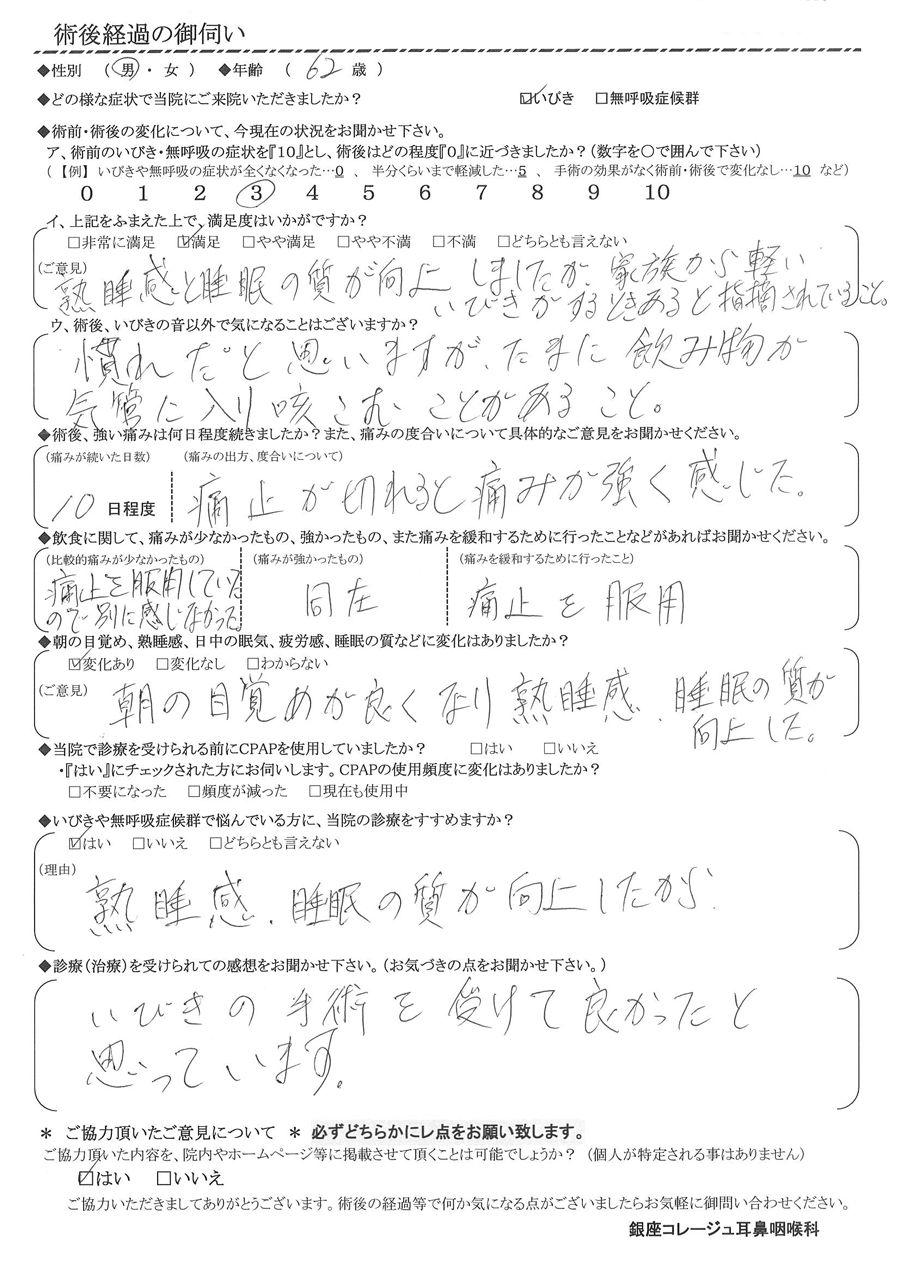 術後経過の御伺い
◆性別 (男・女) ◆年齢 (62歳)
◆どの様な症状で当院にご来院いただきましたか? ☑いびき □無呼吸症候群
◆術前・術後の変化について、今現在の状況をお聞かせ下さい。
ア、術前のいびき・無呼吸の症状を『10』とし、術後はどの程度『0』に近づきましたか?(数字を〇で囲んで下さい)
(【例】いびきや無呼吸の症状が全くなくなった…0 、半分くらいまで軽減した…5 、手術の効果がなく術前・術後で変化なし…10 など)
0 1 2 3 4 5 6 7 8 9 10
イ、上記をふまえた上で、満足度はいかがですか?
□非常に満足 ☑満足 □やや満足 □やや不満 □不満 □どちらとも言えない
(ご意見)
熟睡感と睡眠の質が向上しましたが、家族から軽い
いびきがするときあると指摘されていること。
ウ、術後、いびきの音以外で気になることはございますか?
慣れだと思いますが、たまに飲み物が
気管に入り咳こむことがあること。
◆術後、強い痛みは何日程度続きましたか?また、痛みの度合いについて具体的なご意見をお聞かせください。
(痛みが続いた日数) (痛みの出方、度合いについて)
10日程度 痛止が切れると痛みが強く感じた。
◆飲食に関して、痛みが少なかったもの、強かったもの、また痛みを緩和するために行ったことなどがあればお聞かせください。
(比較的痛みが少なかったもの) (痛みが強かったもの) (痛みを緩和するために行ったこと)
痛止を服用している
ので別に感じなかった 同在 痛止を服用
◆朝の目覚め、熟睡感、日中の眠気、疲労感、睡眠の質などに変化はありましたか?
☑変化あり □変化なし □わからない
(ご意見)
朝の目覚めが良くなり熟睡感、睡眠の質が
向上した。
◆当院で診療を受けられる前にCPAPを使用していましたか? □はい □いいえ
・『はい』にチェックされた方にお伺いします。CPAPの使用頻度に変化はありましたか?
□不要になった □頻度が減った □現在も使用中
◆いびきや無呼吸症候群で悩んでいる方に、当院の診療をすすめますか?
☑はい □いいえ □どちらとも言えない
(理由)
熟睡感、睡眠の質が向上したから
◆診療(治療)を受けられての感想をお聞かせ下さい。(お気づきの点をお聞かせ下さい。)
いびきの手術を受けて良かったと
思っています。
* ご協力頂いたご意見について * 必ずどちらかにレ点をお願い致します。
ご協力頂いた内容を、院内やホームページ等に掲載させて頂くことは可能でしょうか?(個人が特定される事はありません)
☑はい □いいえ
ご協力いただきましてありがとうございます。術後の経過等で何か気になる点がございましたらお気軽に御問い合わせください。
銀座コレージュ耳鼻咽喉科